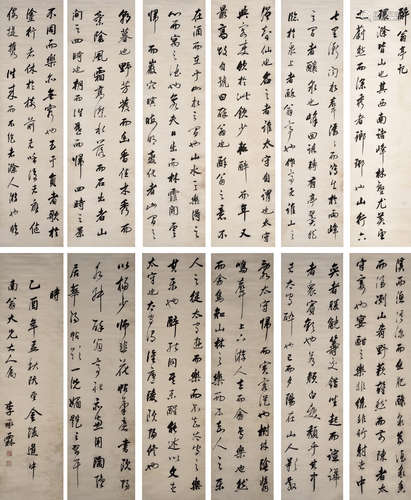 醉翁亭記
環滁皆山也其西南諸峰林壑尤美望
之蔚然而深秀者瑯琊也山行六
七里漸聞水聲潺潺而瀉出於兩峰之間
者釀泉也峰回路轉有亭翼然
臨於泉上者醉翁亭也作亭者誰山之
僧智仙也名之者誰太守自謂也太守
與客來飲於此飲少輒醉而年又
最高故自號曰醉翁也醉翁之意不
在酒而在乎山水之間也山水之樂得之
心而寓之酒也若夫日出而林霏開雲
歸而巖穴暝晦明變化者山間之
朝暮也野芳發而幽香佳木秀而
繁陰風霜高潔水落而石出者山
間之四時也朝而往暮而歸四時之景
不同而樂亦無窮也至於負者歌於
途行者休於樹前者呼後者應
傴僂提攜往來而不絕者滁人游也臨
溪而漁溪深而魚肥釀泉為酒泉香
而酒洌山肴野蔌雜然而前陳者太
守宴也宴酣之樂非絲非竹射者中
弈者勝觥籌交錯坐起而諠譁
者眾賓歡也蒼顏白髮頹然乎其中
者太守醉也已而夕陽在山人影散
亂太守歸而賓客從也樹林陰翳
鳴聲上下游人去而禽鳥樂也
然而禽鳥知山林之樂而不知
人之樂人知從太守遊而樂而不知太守之樂
其樂也醉能同其樂醒能述以文者
太守也太守謂誰廬陵歐陽修也
以楊少師韭花帖筆意書歐陽
永叔醉翁亭記
時
南翁大兄大人屬 李